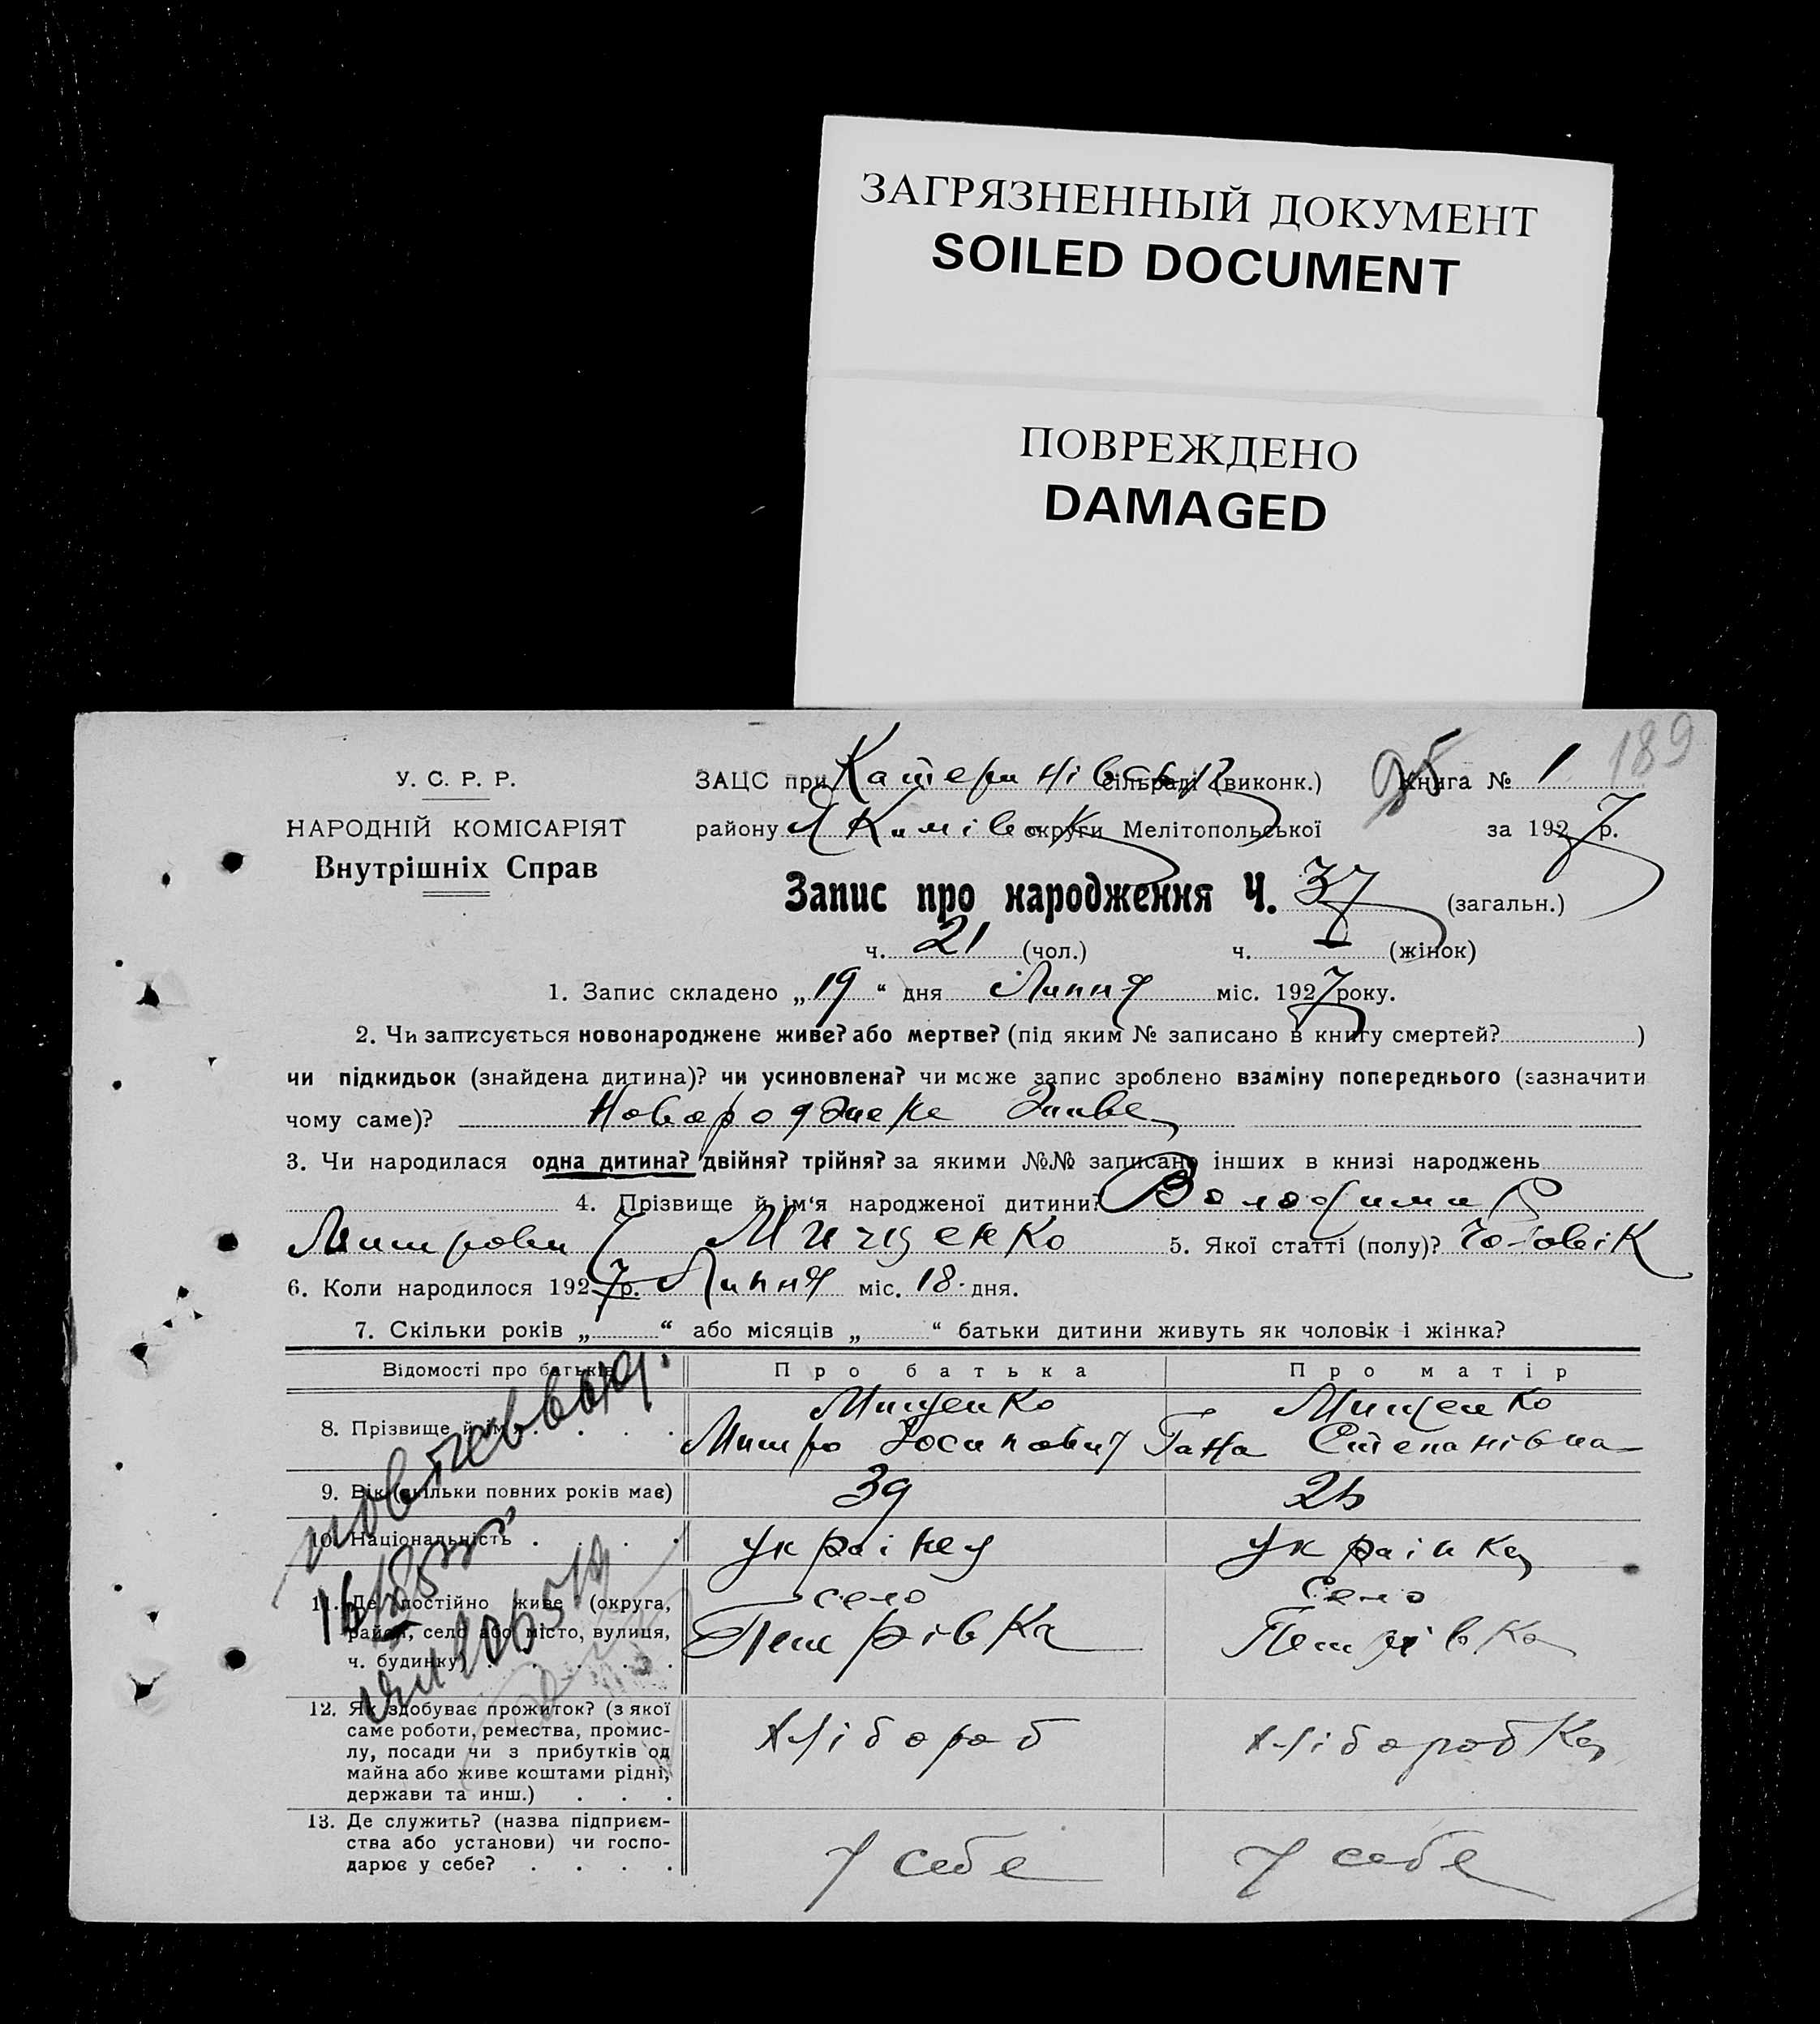 ЗАГРЯЗНЕННЫЙ ДОКУМЕНТ
SOILED DOCUMENT
ПОВРЕЖДЕНО
DAMAGED
189
У. С. Р. Р.
НАРОДНІЙ КОМІСАРІЯТ
Внутрішніх Справ
ЗАЦС при Катеринівськ сільраді (виконк.) Книга № 1
району Якимівськ округи Мелітопольської за 1927 р.
Запис про народження Ч. 37 (загальн.)
ч. 21 (чол.) ч. (жінок)
1. Запис складено „ 19 “ дня Липня міс. 1927 року.
2. Чи записується новонароджене живе? або мертве? (під яким № записано в книгу смертей? )
чи підкидьок (знайдена дитина)? чи усиновлена? чи може запис зроблено взаміну попереднього (зазначити
чому саме)? Новороджене живе
3. Чи народилася одна дитина? двійня? трійня? за якими №№ записано інших в книзі народжень
4. Прізвище й ім‘я народженої дитини? Володимир
Митрович Мищенко 5. Якої статті (полу)? Чоловік
6. Коли народилося 1927 р. Липня міс. 18 дня.
7. Скільки років „ “ або місяців „ “ батьки дитини живуть як чоловік і жінка?
Відомості про батьків Про батька Про матір
8. Прізвище й ім‘я . . . . Мищенко Мищенко
Митро Йосипович Гана Степанівна
9. Вік (скільки повних років має) 39
10. Національність . . . . українец українка
11. Де постійно живе (округа, село село
район, село або місто, вулиця, Петрівка Петрівка
ч. будинку) . . . .
12. Як здобуває прожиток? (з якої
саме роботи, ремества, промис-
лу, посади чи з прибутків од хлібороб хліборобка
майна або живе коштами рідні,
держави та инш.) . . .
13. Де служить? (назва підприєм-
ства або установи) чи госпо- у себе у себе
дарює у себе? . . . .